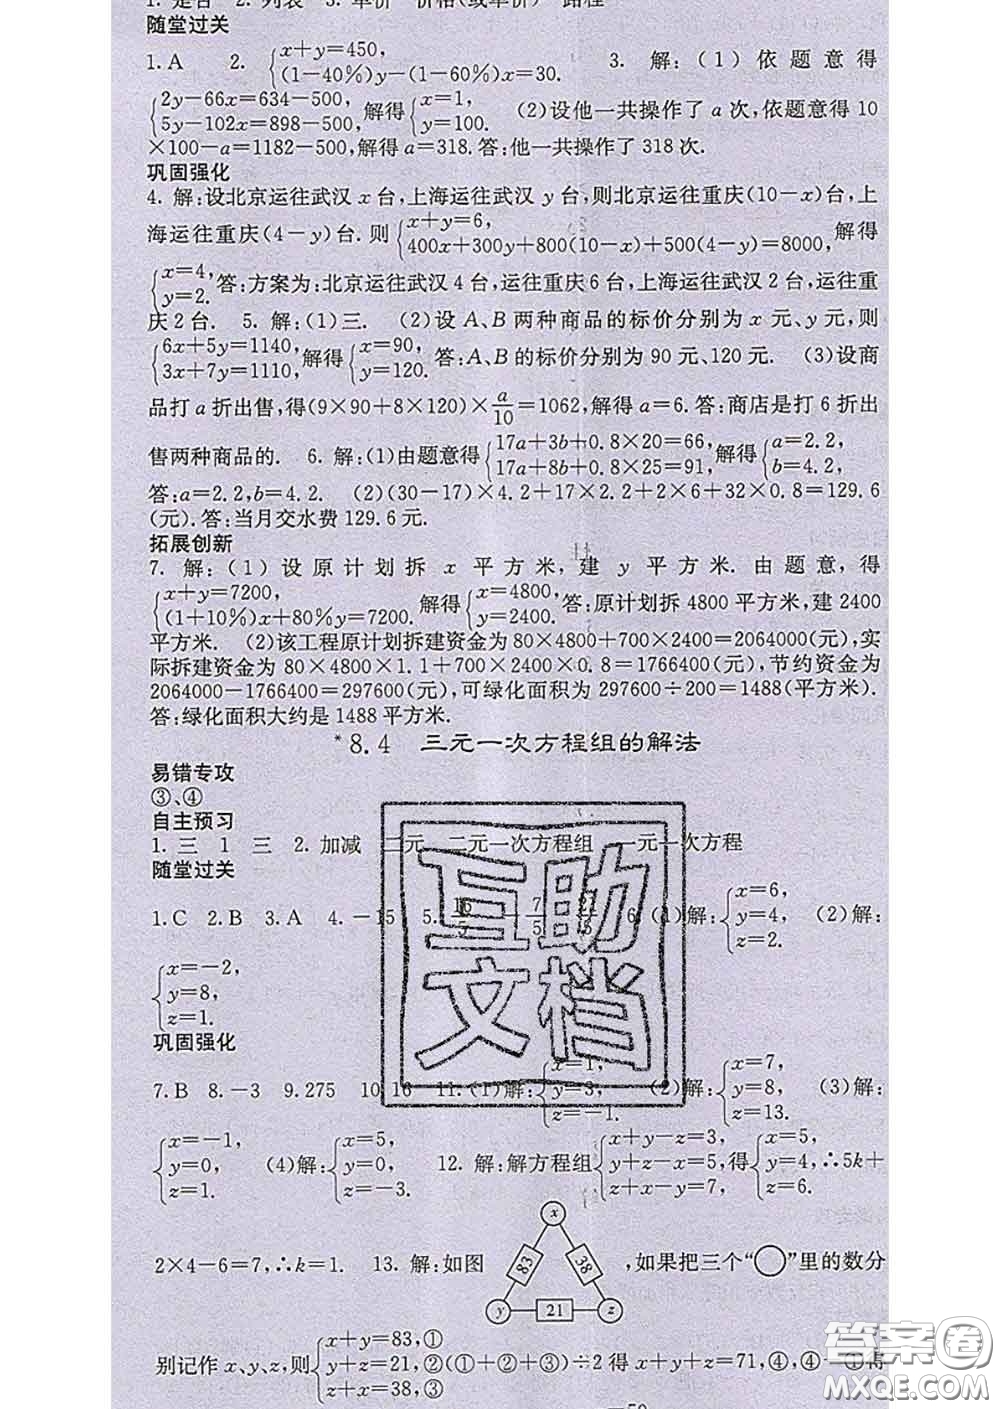 1. 是否 2. 列表 3. 单价 价格(或单价) 路程
随堂过关
1. A 2. {x+y=450, (1-40%)y-(1-60%)x=30. 3. 解:(1)依题意得
{2y-66x=634-500, 5y-102x=898-500, 解得{x=1, y=100. (2)设他一共操作了a次,依题意得10
×100-a=1182-500,解得a=318.答:他一共操作了318次.
巩固强化
4. 解:设北京运往武汉x台,上海运往武汉y台,则北京运往重庆(10-x)台,上
海运往重庆(4-y)台.则{x+y=6, 400x+300y+800(10-x)+500(4-y)=8000, 解得
{x=4, y=2. 答:方案为:北京运往武汉4台,运往重庆6台,上海运往武汉2台,运往重
庆2台. 5. 解:(1)三. (2)设A、B两种商品的标价分别为x元、y元,则
{6x+5y=1140, 3x+7y=1110, 解得{x=90, y=120. 答:A、B的标价分别为90元、120元. (3)设商
品打a折出售,得(9×90+8×120)×a/10=1062,解得a=6.答:商店是打6折出
售两种商品的. 6. 解:(1)由题意得{17a+3b+0.8×20=66, 17a+8b+0.8×25=91, 解得{a=2.2, b=4.2.
答:a=2.2,b=4.2. (2)(30-17)×4.2+17×2.2+2×6+32×0.8=129.6
(元).答:当月交水费129.6元.
拓展创新
7. 解:(1)设原计划拆x平方米,建y平方米.由题意,得
{x+y=7200, (1+10%)x+80%y=7200. 解得{x=4800, y=2400. 答:原计划拆4800平方米,建2400
平方米. (2)该工程原计划拆建资金为80×4800+700×2400=2064000(元),实
际拆建资金为80×4800×1.1+700×2400×0.8=1766400(元),节约资金为
2064000-1766400=297600(元),可绿化面积为297600÷200=1488(平方米).
答:绿化面积大约是1488平方米.
*8.4 三元一次方程组的解法
易错专攻
③、④
自主预习
1. 三 1 三 2. 加减 三元 二元一次方程组 一元一次方程
随堂过关
1. C 2. B 3. A 4. -15 5. 6. (1)解:{x=6, y=4, z=2. (2)解:
{x=-2, y=8, z=1.
巩固强化
7. B 8. -3 9. 275 10. 16 11. (1)解:{x=1, y=3, z=-1. (2)解:{x=7, y=8, z=13. (3)解:
{x=-1, y=0, z=1. (4)解:{x=5, y=0, z=-3. 12. 解:解方程组{x+y-z=3, y+z-x=5, z+x-y=7, 得{x=5, y=4, z=6. ∴5k+
2×4-6=7,∴k=1. 13. 解:如图 x 83 38 y 21 z ,如果把三个“○”里的数分
别记作x、y、z,则{x+y=83,① y+z=21,② z+x=38,③ (①+②+③)÷2得x+y+z=71,④,④-①得
互助
文档
答案圈
MXQE.COM